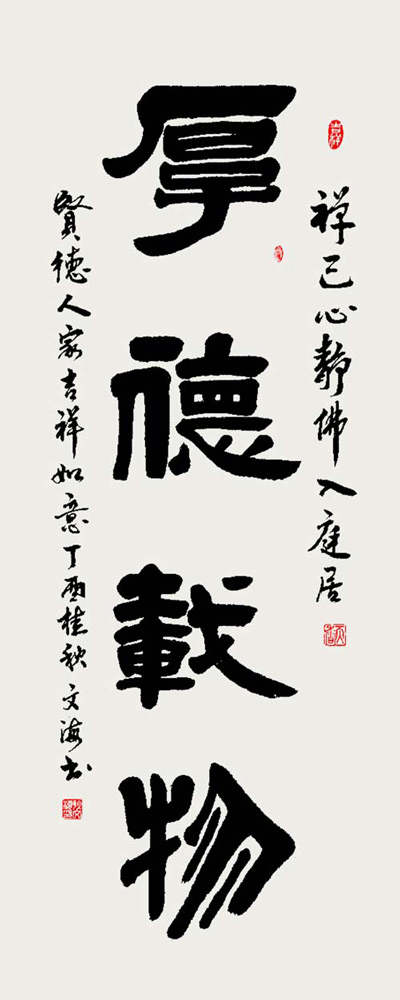 禅已心静佛入庭居
厚德載物
賢德人家吉祥如意丁酉桂秋文海书
吉祥